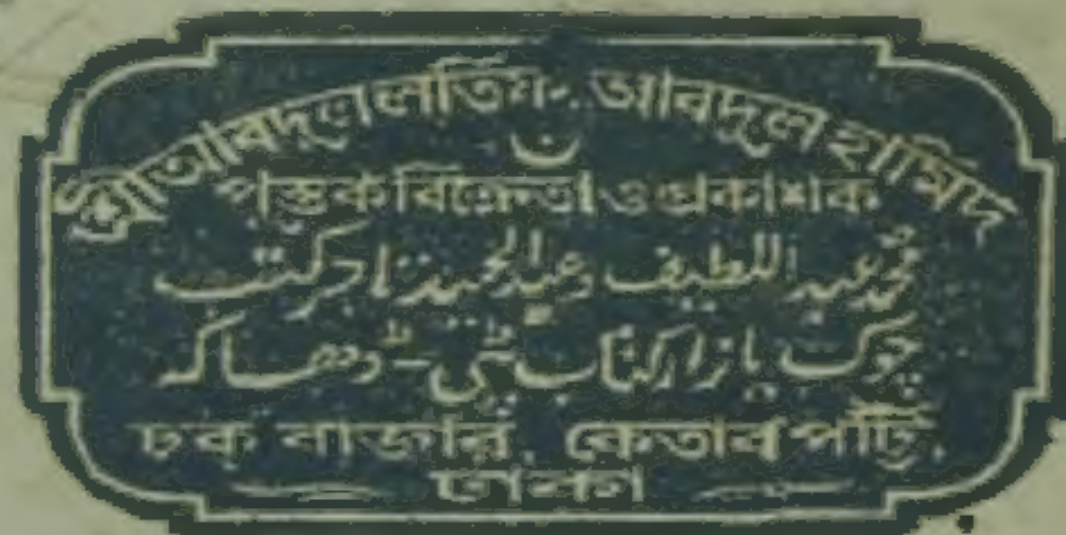 শ্রীআবদুল লতিফ. আবদুল হামিদ
পুস্তক বিক্রেতা ও প্রকাশক
محمد عبد اللطيف وعبد الحميد تاجر كتب
چوک بازار کتاب پٹی - ڈھاکہ
চক বাজার, কেতাব পট্টি,
ঢাকা